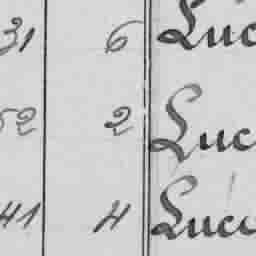 31 6 Luc
52 2 Luc
41 4 Luc